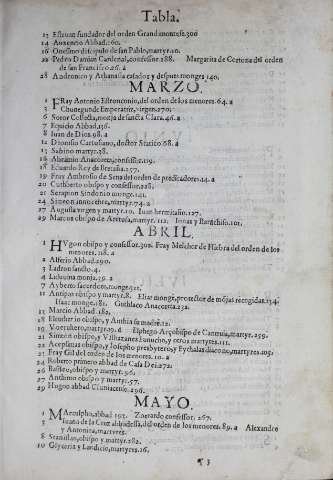 Tabla.
13 Esteuan fundador del orden Grandimontese.306
14 Auxencio Abbad.160.
16 Onesimo discipulo de san Pablo, martyr.20.
22 Pedro Damian Cardenal, confessor.288. Margarita de Cortona del orden
de san Francisco.26.a
28 Andronico y Athanasia casados y despues monges 140.
MARZO.
1 FRay Antonio Estronconio, del orden de los menores.64.a
3 Chunegunde Emperatriz, virgen.270.
6 Soror Collecta, monja de sancta Clara.46.a
7 Equicio Abbad.156.
8 Iuan de Dios.98.a
12 Dionisio Cartusano, doctor Stratico.68.a
13 Sabino martyr.38.
16 Abramio Anacoreta, confessor.119.
18 Eduardo Rey de Bretaña.257.
19 Fray Ambrosio de Sena del orden de predicadores.14.a
20 Cuthberto obispo y confessor.228.
21 Serapion Sindonio monge.141.
24 Simeon innocente, martyr.74.a
27 Augusta virgen y martyr.10. Iuan hermitaño.127.
29 Marcos obispo de Aretusa, martyr.112. Ionas y Barachiso.101.
ABRIL.
1 HVgon obispo y confessor.308. Fray Melchor de el orden de los
menores.118.a
2 Alferio Abbad.290.
3 Ladron sancto.4.
4 Liduuina monja.39.a
7 Ayberto sacerdote, monge.321.
11 Antipas obispo y martyr.8. Elias monge, protector de monjas recogidas.134.
Isaac monge.181. Guthlaco Anacoreta.232.
13 Marcio Abbad.182.
18 Eleuterio obispo, y Anthia su madre.12.
19 Vuernhero, martyr.
21 Simeon obispo, y Vsthazanes Eunucho, y otros martyres.111.
22 Acepsimas obispo, y Iosepho presbytero, y Eychalas diacono, martyres.103.
23 Fray Gil del orden de los menores.10.a
24 Roberto primero abbad de Casa Dei.272.
26 Basileo, obispo y martyr.96.
27 Anthimo obispo y martyr.57.
29 Hugon abbad Cluniacense.296.
MAYO.
1 MArculpho, abbad 197. confessor.267.
3 Iuana de la Cruz abbadessa, del orden de los menores.89.a Alexandro
y Antonina, martyres.
8 Stanislao, obispo y martyr.282.
10 Glyceria y Laodicio, martyres.16.
¶ 3